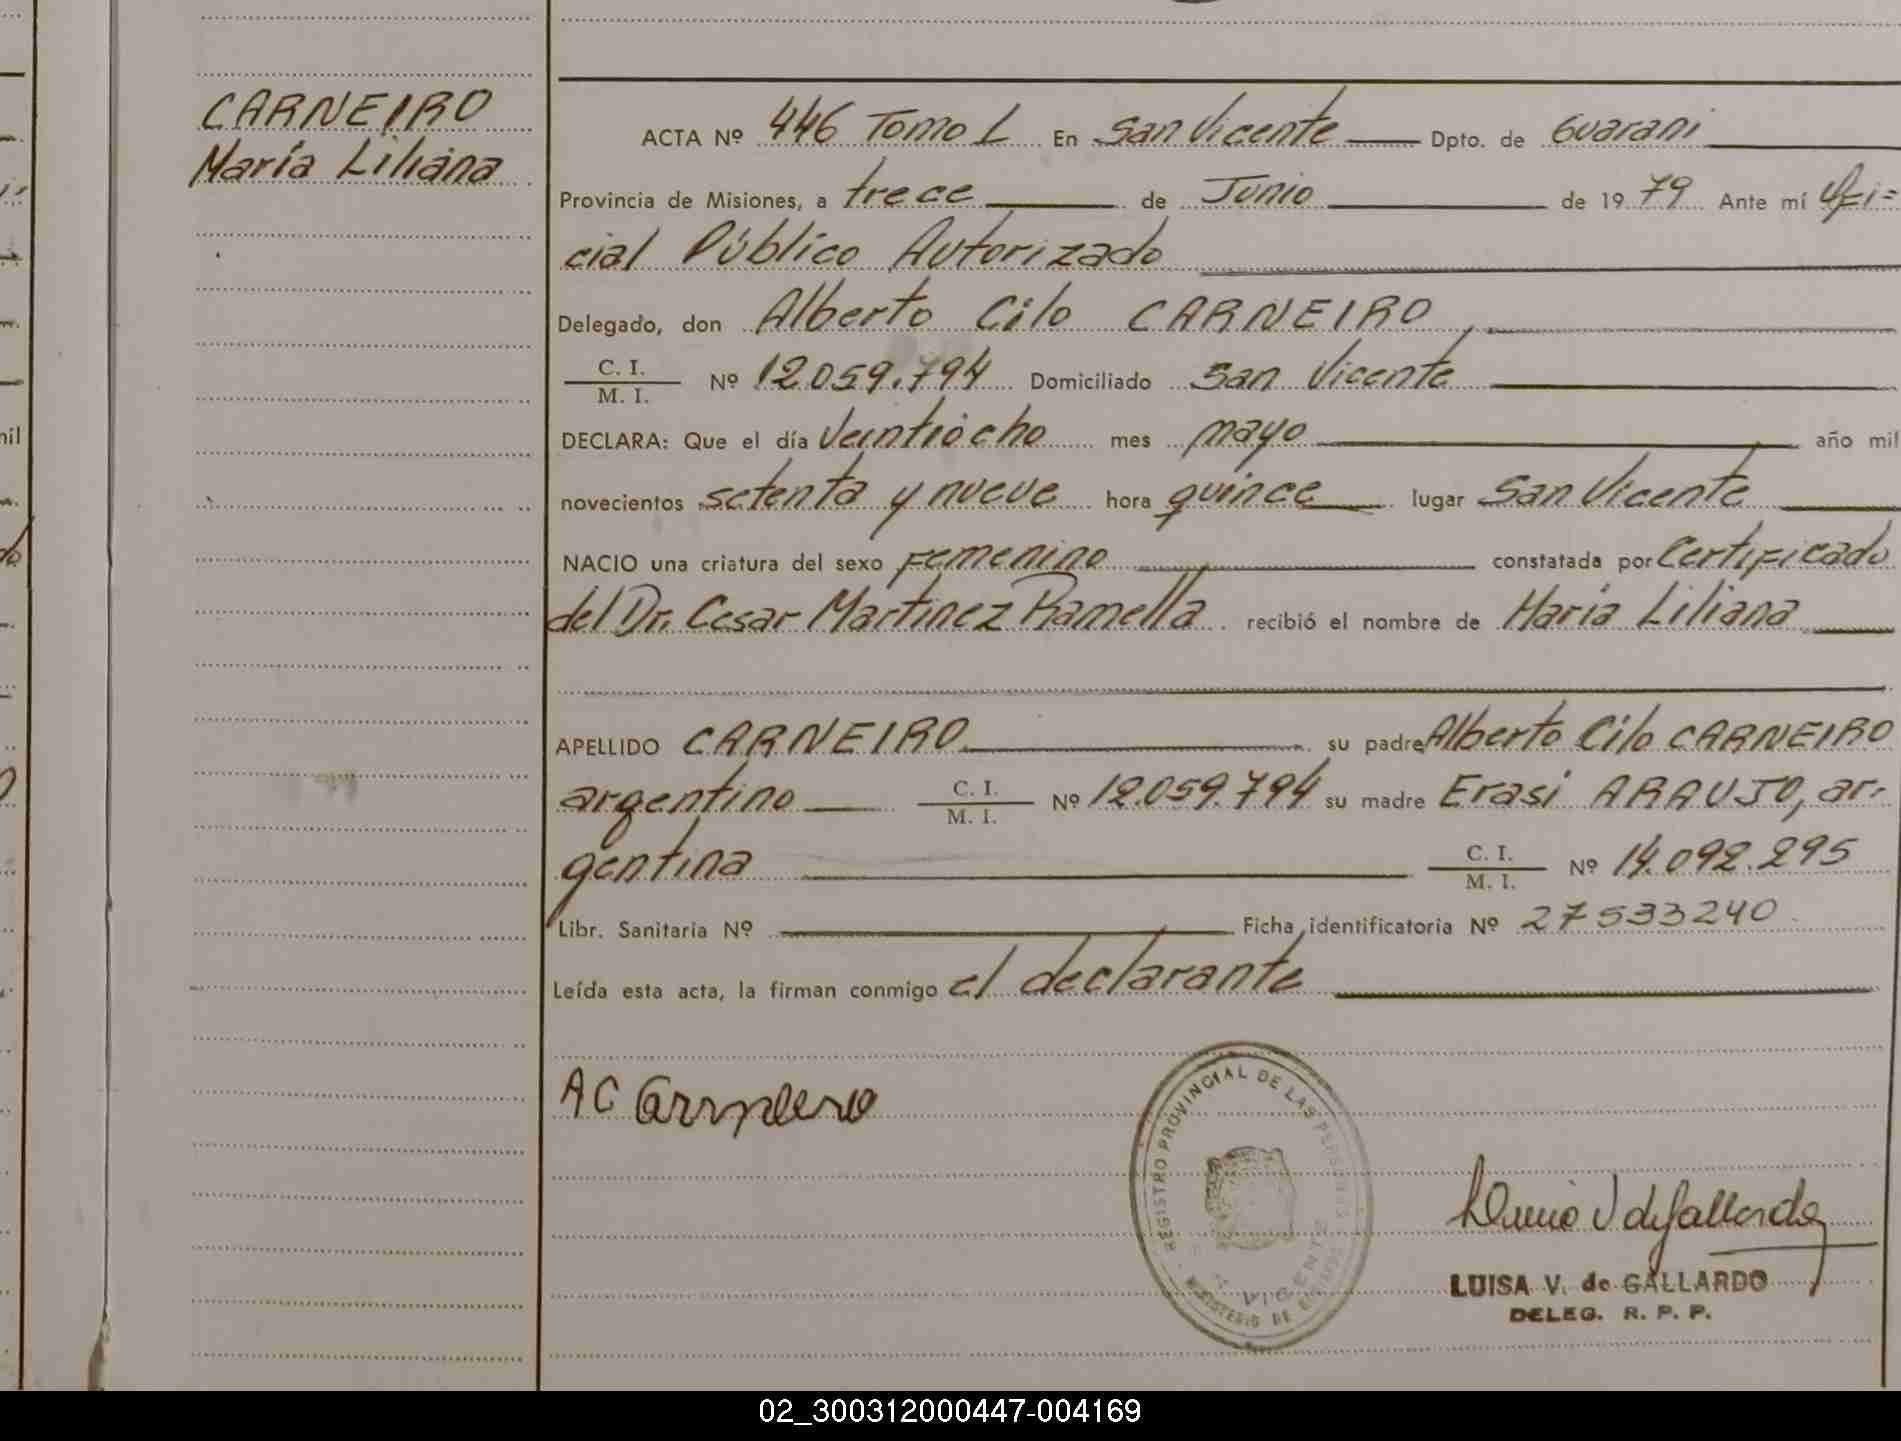 CARNEIRO
María Liliana
ACTA Nº 446 Tomo L En San Vicente Dpto. de Guaraní
Provincia de Misiones, a trece de Junio de 1979 Ante mí Ofi=
cial Público Autorizado
Delegado, don Alberto Cilo CARNEIRO,
C. I.
M. I. Nº 12.059.794 Domiciliado San Vicente
DECLARA: Que el día Veintiocho mes mayo año mil
novecientos setenta y nueve hora quince lugar San Vicente
NACIO una criatura del sexo femenino constatada por Certificado
del Dr. Cesar Martinez Ramella recibió el nombre de María Liliana
APELLIDO CARNEIRO su padre Alberto Cilo CARNEIRO
argentino C. I. M. I. Nº 12.059.794 su madre Erasi ARAUJO, ar-
gentina C. I. M. I. Nº 14.092.295
Libr. Sanitaria Nº Ficha identificatoria Nº 27533240
Leída esta acta, la firman conmigo el declarante
AC Carneiro
REGISTRO PROVINCIAL DE LAS PERSONAS
VICENTE
MINISTERIO DE
LUISA V. de GALLARDO
DELEG. R. P. P.
02_300312000447-004169